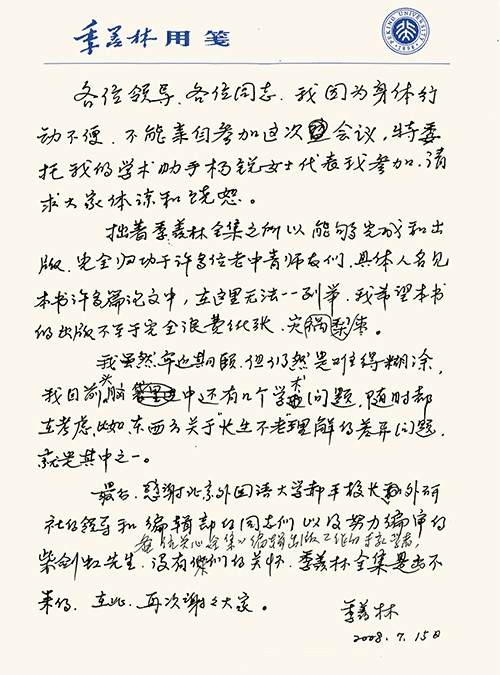 季羡林用笺
PEKING UNIVERSITY
1898
各位领导、各位同志、我因为身体行
动不便、不能亲自参加这次会议，特委
托我的学术助手杨锐女士代表我参加，请
求大家体谅和饶恕。
拙著季羡林全集之所以能够完成和出
版、完全归功于许多位老中青师友们，具体人名见
本书许多篇论文中，在这里无法一一列举，我希望本书
的出版不至于完全浪费纸张、灾祸梨枣。
我虽然年近期颐，但仍然是难得糊涂，
我目前头脑中还有几个学术问题，随时都
在考虑，比如，东西方关于"长生不老"理解的差异问题，
就是其中之一。
最后，感谢北京外国语大学郝平校长和外研
社的领导和编辑部的同志们以及努力编审的
柴剑虹先生、每位关心全集编辑出版工作的
没有他们的关怀，季羡林全集是出不
来的，在此，再次谢谢大家。
季羡林
2008.7.15日